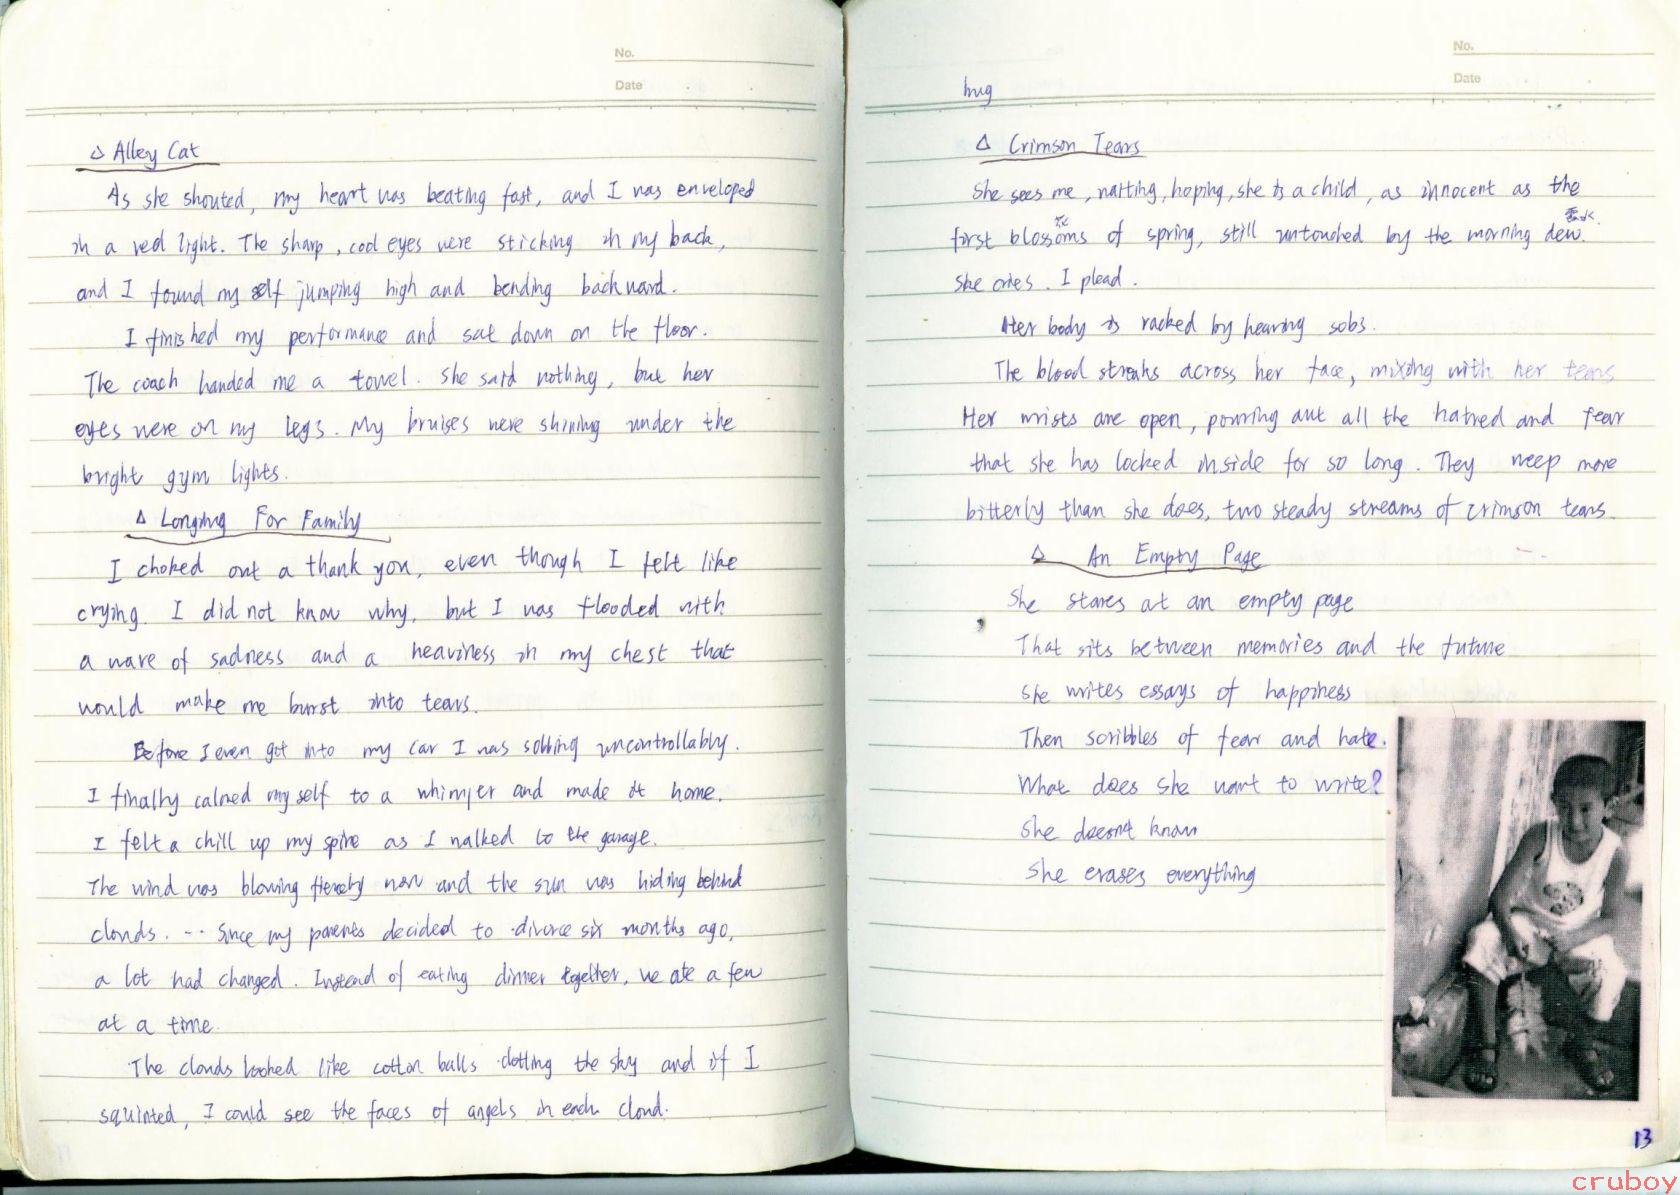 No.
Date
△ Alley Cat
As she shouted, my heart was beating fast, and I was enveloped
in a red light. The sharp, cool eyes were sticking in my back,
and I found myself jumping high and bending backward.
I finished my performance and sat down on the floor.
The coach handed me a towel. She said nothing, but her
eyes were on my legs. My bruises were shining under the
bright gym lights.
△ Longing For Family
I choked out a thank you, even though I felt like
crying. I did not know why, but I was flooded with
a wave of sadness and a heaviness in my chest that
would make me burst into tears.
Before I even got into my car I was sobbing uncontrollably.
I finally calmed myself to a whimper and made it home.
I felt a chill up my spine as I walked to the garage.
The wind was blowing fiercely now and the sun was hiding behind
clouds. -- Since my parents decided to divorce six months ago,
a lot had changed. Instead of eating dinner together, we ate a few
at a time.
The clouds looked like cotton balls dotting the sky and if I
squinted, I could see the faces of angels in each cloud.
No.
Date
hug
△ Crimson Tears
She sees me, waiting, hoping, she is a child, as innocent as the
花 露水
first blossoms of spring, still untouched by the morning dew.
She cries. I plead.
Her body is racked by heaving sobs.
The blood streaks across her face, mixing with her tears
Her wrists are open, pouring out all the hatred and fear
that she has locked inside for so long. They weep more
bitterly than she does, two steady streams of crimson tears.
△ An Empty Page
She stares at an empty page
That sits between memories and the future
She writes essays of happiness
Then scribbles of fear and hate.
What does she want to write?
She doesn't know
She erases everything
13
cruboy